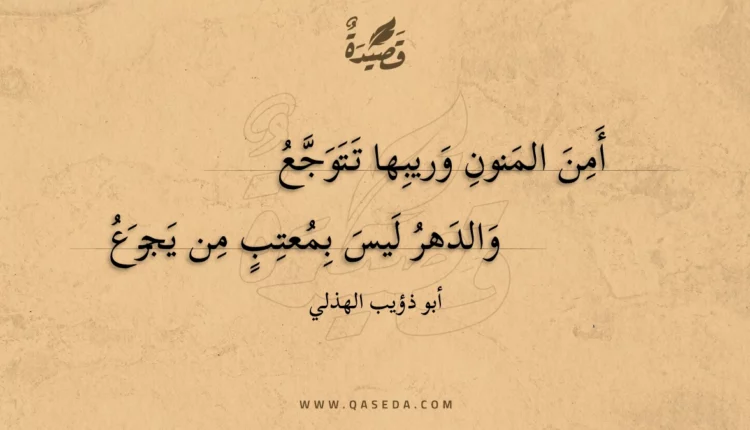 قَصِيْدَةٌ
أَمِنَ المَنونِ وَريبِها تَتَوَجَّعُ
وَالدَهرُ لَيسَ بِمُعتِبٍ مِن يَجزَعُ
أبو ذؤيب الهذلي
WWW.QASEDA.COM